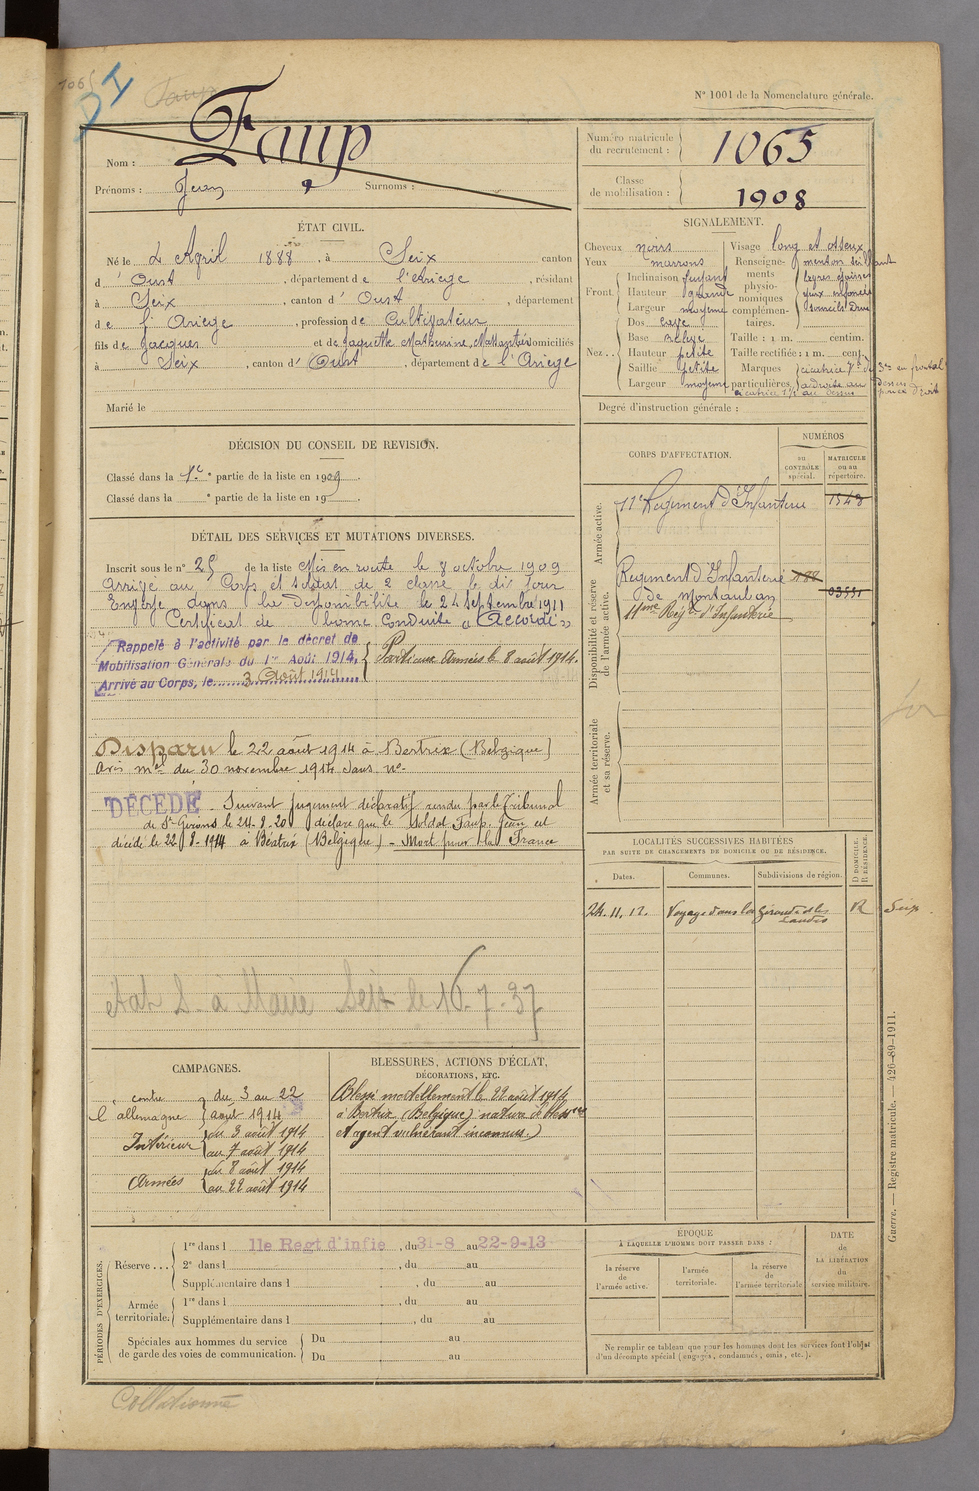 1065
DI
Faup
N° 1001 de la Nomenclature générale.
Nom : Faup
Prénoms : Jean Surnoms :
Numéro matricule du recrutement : 1065
Classe de mobilisation : 1908
ÉTAT CIVIL.
Né le 4 April 1888, à Seix canton
d'Oust, département de l'Ariège, résidant
à Seix, canton d'Oust, département
de l'Ariège, profession de Cultivateur
fils de Jacques et de Jaquette Mathurine, domiciliés
à Seix, canton d'Oust, département de l'Ariège
Marié le
SIGNALEMENT.
Cheveux noirs
Yeux marrons
Front. Inclinaison fuyant
Hauteur grande
Largeur moyenne
Nez. Dos cave
Base relevé
Hauteur petite
Saillie petite
Largeur moyenne
Visage long et osseux
Renseignements physionomiques complémentaires. menton saillant
Taille : 1 m. centim.
Taille rectifiée : 1 m. cent.
Marques particulières, cicatrice
Degré d'instruction générale :
DÉCISION DU CONSEIL DE REVISION.
Classé dans la 1re partie de la liste en 1909
Classé dans la ° partie de la liste en 19
DÉTAIL DES SERVICES ET MUTATIONS DIVERSES.
Inscrit sous le n° 25 de la liste Mis en route le 8 octobre 1909
Arrivé au Corps et soldat de 2 classe le dit jour
Envoyé dans la Disponibilité le 24 septembre 1911
Certificat de bonne Conduite "Accordé"
Rappelé à l'activité par le décret de
Mobilisation Générale du 1er Août 1914,
Arrivé au Corps, le 3 Août 1914
Parti aux Armées le 8 août 1914.
Disparu le 22 août 1914 à Bertrix (Belgique)
avis mel du 30 novembre 1914 sans n°.
DÉCÉDÉ - Suivant jugement déclaratif rendu par le Tribunal
de St Girons le 24-8-20 déclare que le soldat Faup Jean est
décédé le 22-8-1914 à Béatrix (Belgique) - Mort pour la France
état S. à Mairie Seix le 16-7-37
CORPS D'AFFECTATION.
NUMÉROS
au CONTRÔLE spécial.
MATRICULE ou au répertoire.
Armée active.
11e Régiment d'Infanterie 1548
Disponibilité et réserve de l'armée active.
Régiment d'Infanterie
de Montauban
11ème Régt d'Infanterie
Armée territoriale et sa réserve.
LOCALITÉS SUCCESSIVES HABITÉES
PAR SUITE DE CHANGEMENTS DE DOMICILE OU DE RÉSIDENCE.
Dates.
Communes.
Subdivisions de région.
D DOMICILE. R RÉSIDENCE.
24.11.12. Voyage dans la Gironde et les Landes R Seix
CAMPAGNES.
contre l'allemagne du 3 au 22 août 1914
Intérieur du 3 août 1914
au 7 août 1914
Armées du 8 août 1914
au 22 août 1914
BLESSURES, ACTIONS D'ÉCLAT,
DÉCORATIONS, ETC.
Blessé mortellement le 22 août 1914
à Bertrix (Belgique) nature de blessures
et agent vulnérant inconnus.)
PÉRIODES D'EXERCICES.
Réserve ... 1re dans l 11e Regt d'infie, du 31-8 au 22-9-13
2e dans l , du au
Supplémentaire dans l , du au
Armée territoriale. 1re dans l , du au
Supplémentaire dans l , du au
Spéciales aux hommes du service de garde des voies de communication. Du au
Du au
ÉPOQUE
À LAQUELLE L'HOMME DOIT PASSER DANS :
la réserve de l'armée active.
l'armée territoriale.
la réserve de l'armée territoriale
DATE de LA LIBÉRATION du service militaire.
Ne remplir ce tableau que pour les hommes dont les services font l'objet
d'un décompte spécial (engagés, condamnés, omis, etc.).
Guerre. — Registre matricule. — 426-89-1911.
Collationné